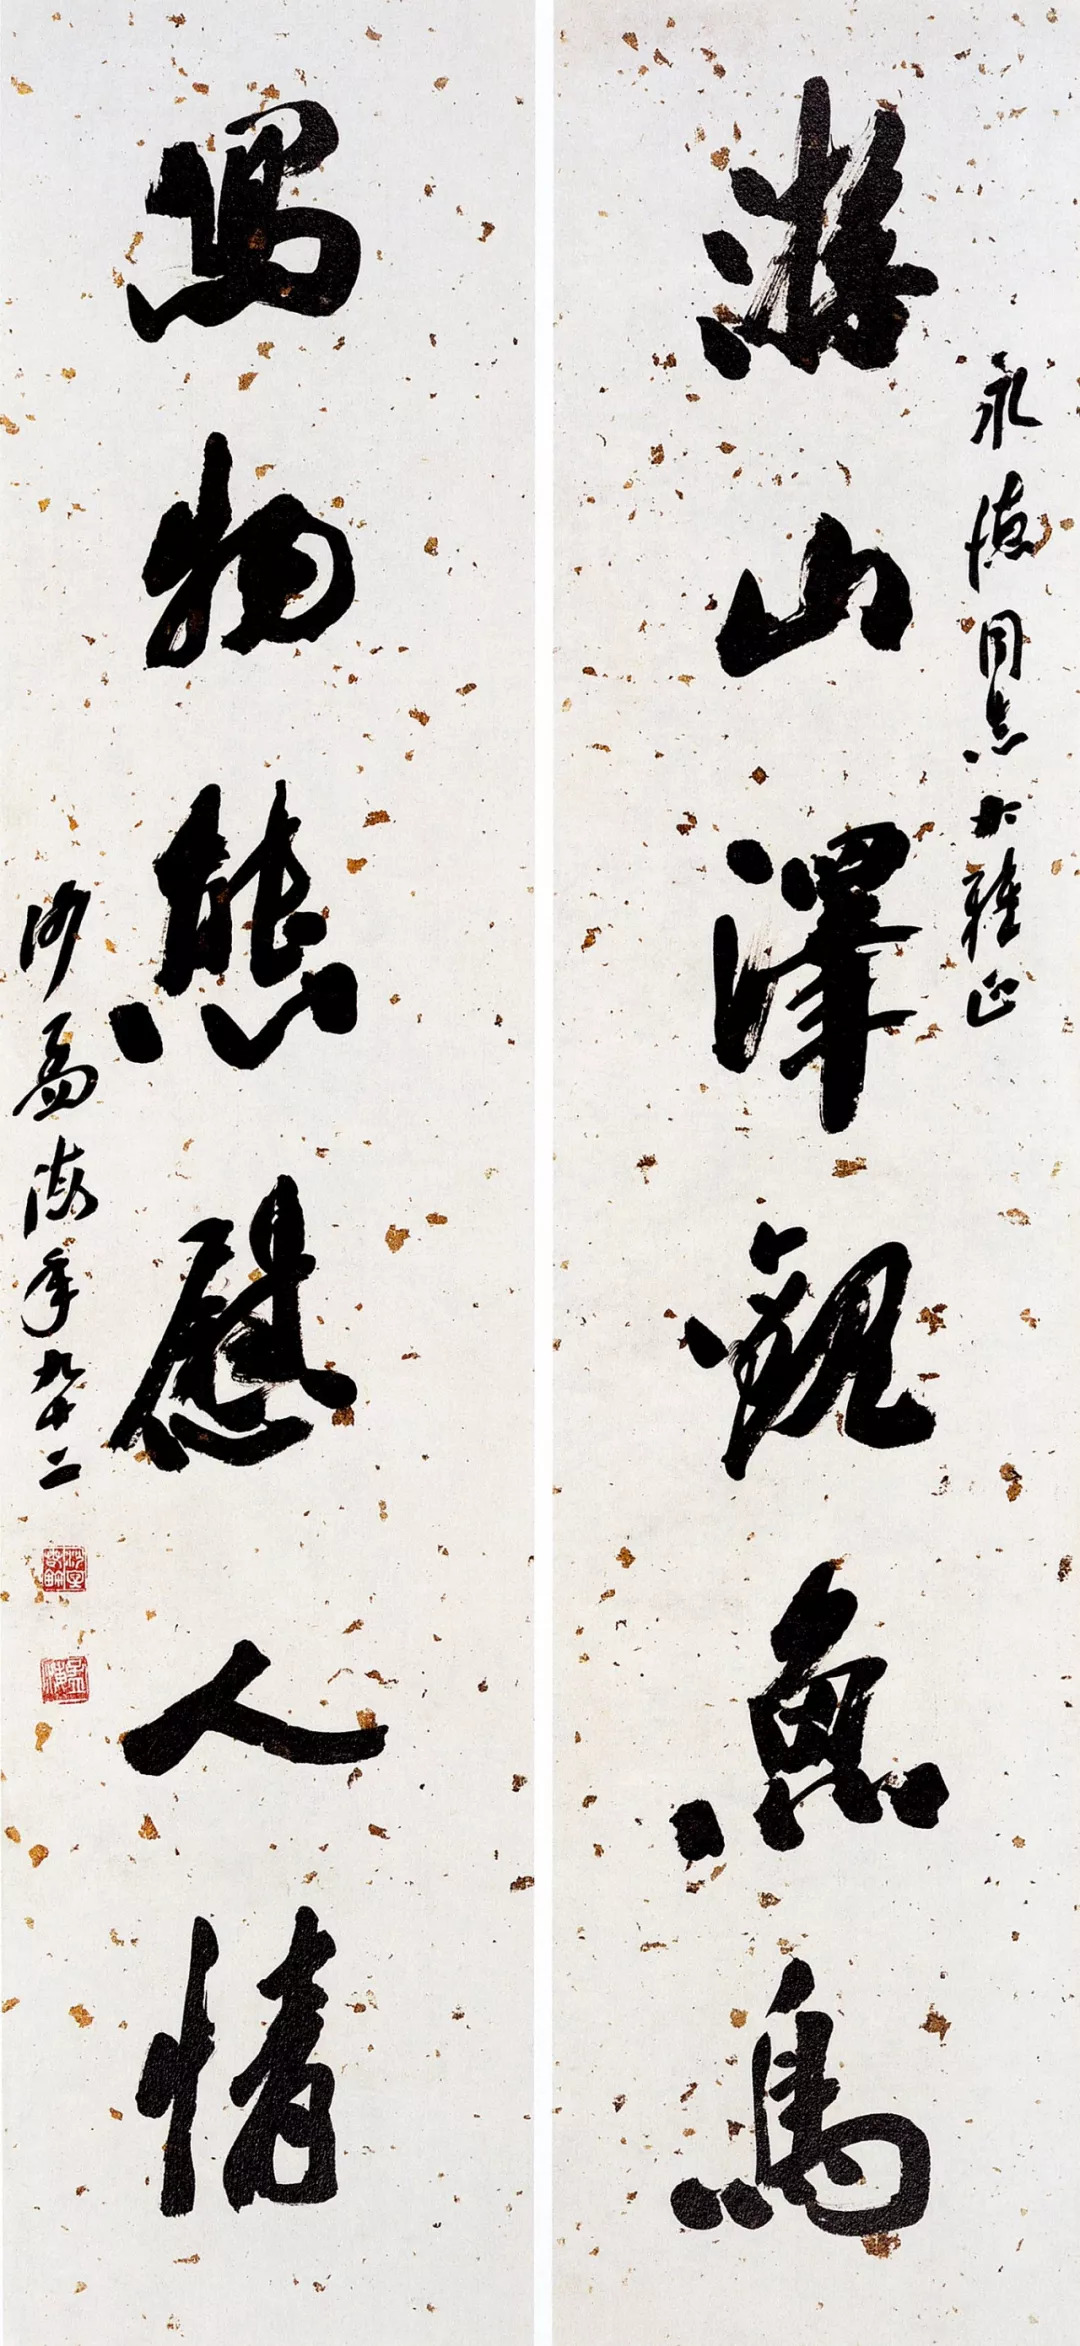 永德同志大雅正
游山澤觀魚鳥
寫物態慰人情
沙孟海年九十二
孟海